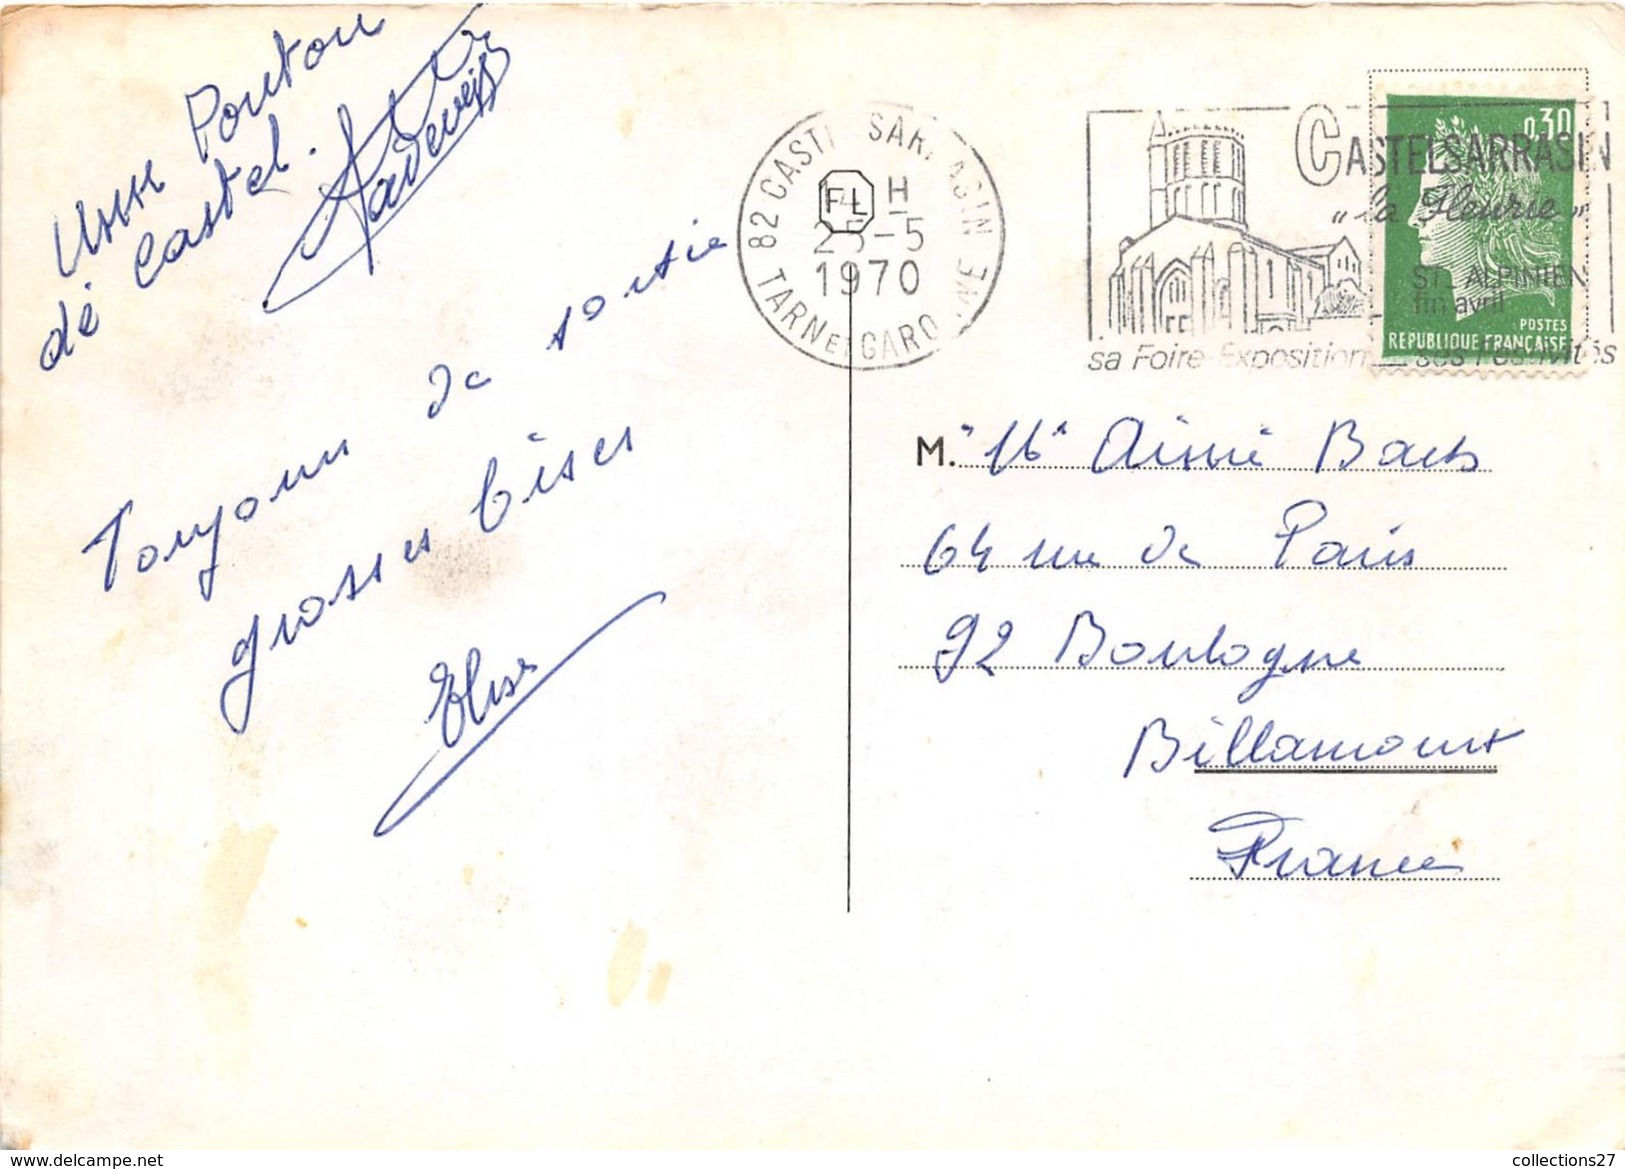 Poutou
de Castel.
Toujours de sortie
grosses bises
Elise
82 CASTELSARRASIN
FL
H
25-5
1970
TARN ET GARONNE
CASTELSARRASIN
"la Fleurie"
ST ALPINIEN
fin avril
sa Foire-Exposition ses Festivités
0,30
POSTES
REPUBLIQUE FRANÇAISE
M. Aimé
64 rue de Paris
92 Boulogne
Billancourt
France
collections27